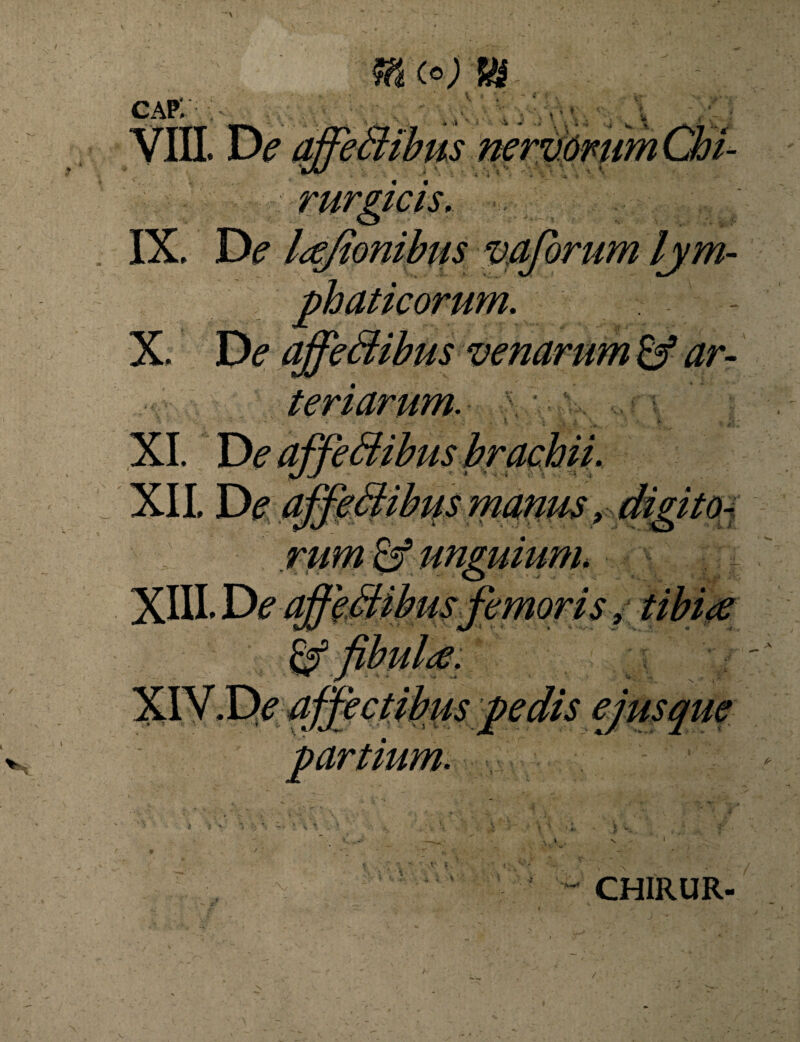 (o)
CAP.
VIII. De affectibus nervorum Chi-
rurgicis.
IX. De læsionibus vasorum lym-
phaticorum.
X. De affectibus venarum & ar-
teriarum.
XI. De affectibus brachii.
XII. De affectibus manus, digito-
rum & unguium.
XIII. De affectibus femoris, tibiæ
& fibulæ.
XIV. De affectibus pedis ejusque
partium.
CHIRUR-